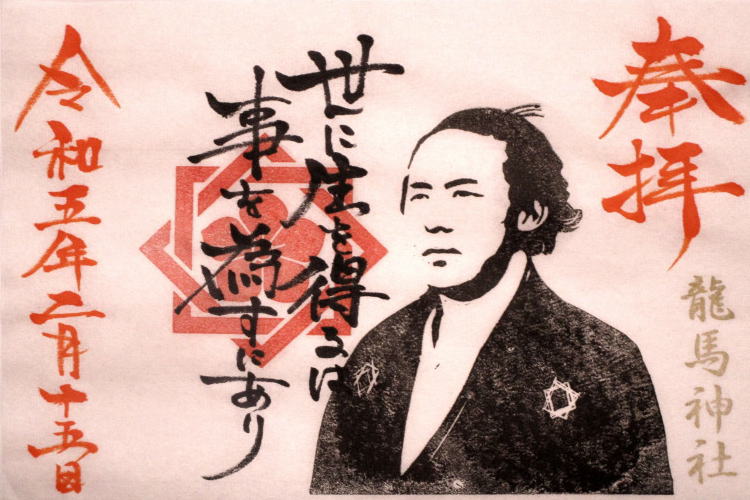 奉拝
龍馬神社
世に生を得るは
事を為すにあり
令和五年二月十五日